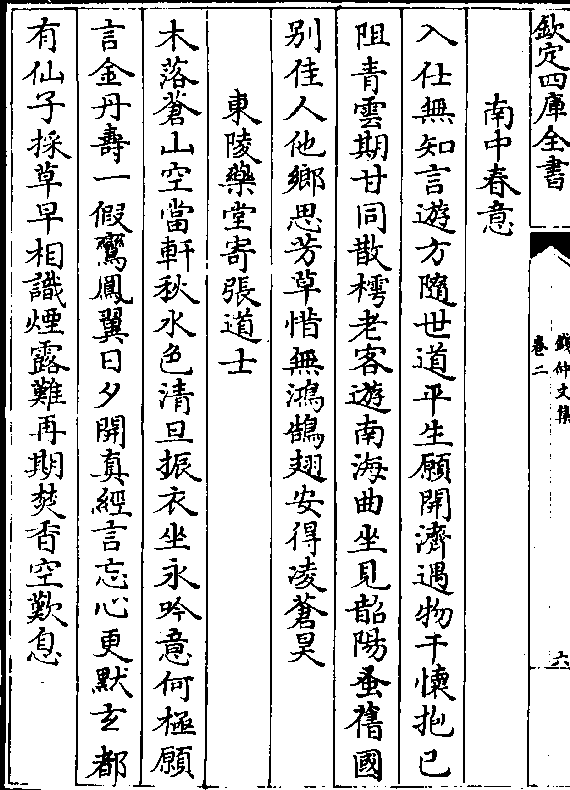 欽定四庫全書
錢仲文集
卷二
六
南中春意
入仕無知言遊方隨世道平生願開濟遇物干懷抱已
阻青雲期甘同散樗老客遊南海曲坐見韶陽蚤舊國
别佳人他鄉思芳草惜無鴻鵠翅安得凌蒼昊
東陵藥堂寄張道士
木落蒼山空當軒秋水色清旦振衣坐永吟意何極願
言金丹壽一假鸞鳳翼日夕開真經言忘心更默玄都
有仙子採草早相識煙露難再期焚香空歎息